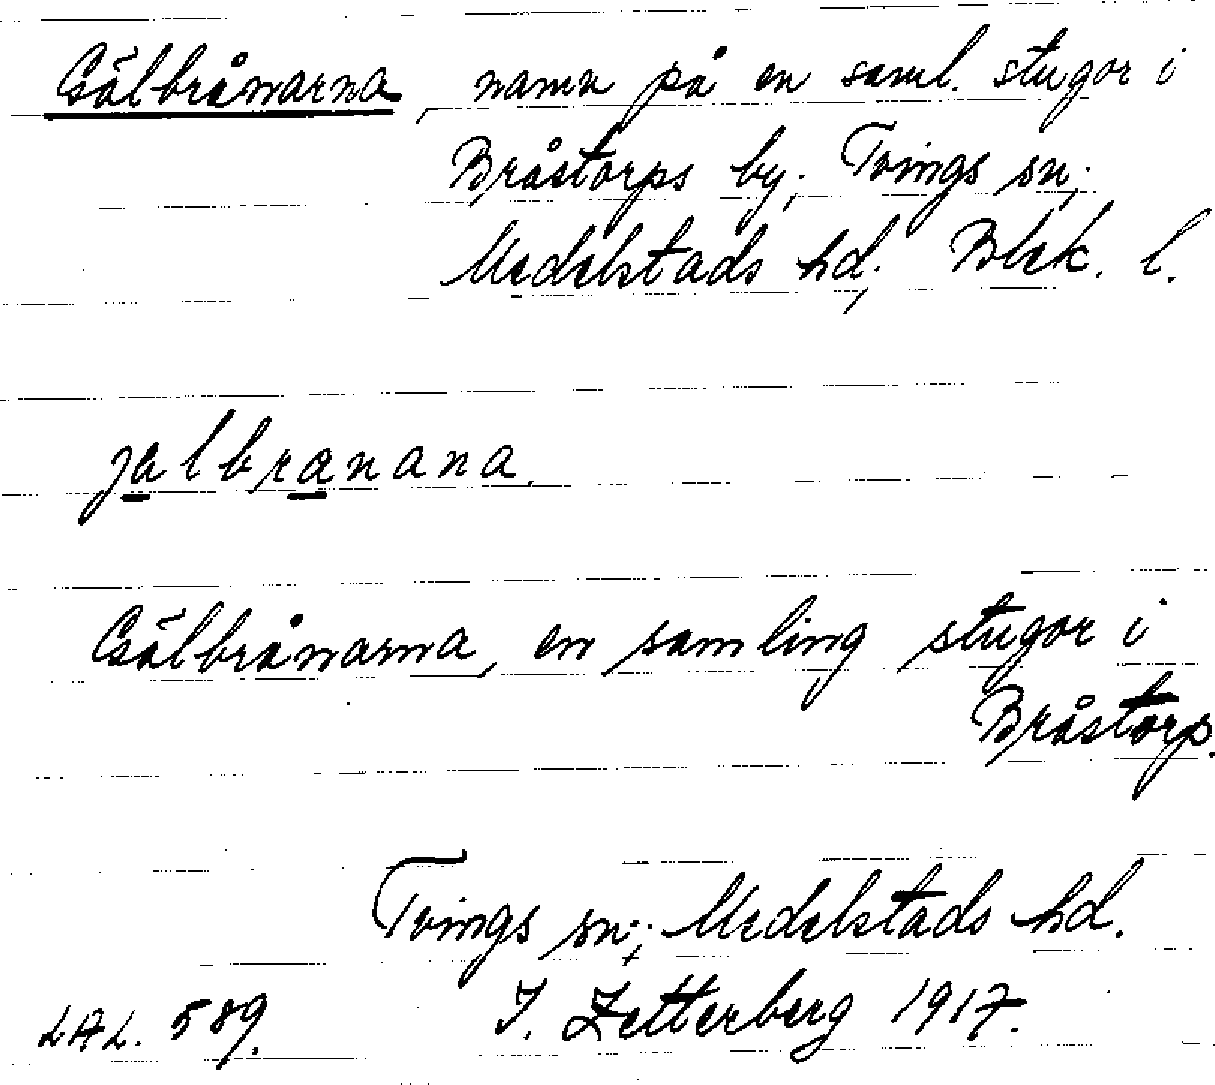 Gälbrånarna, namn på en saml. stugor i
Bråstorps by; Tvings sn;
Medelstads hd; Blek. l.
jalbranana.
Gälbrånarna, en samling stugor i
Bråstorp.
Tvings sn; Medelstads hd.
LAL. 589. I. Zetterberg 1917.